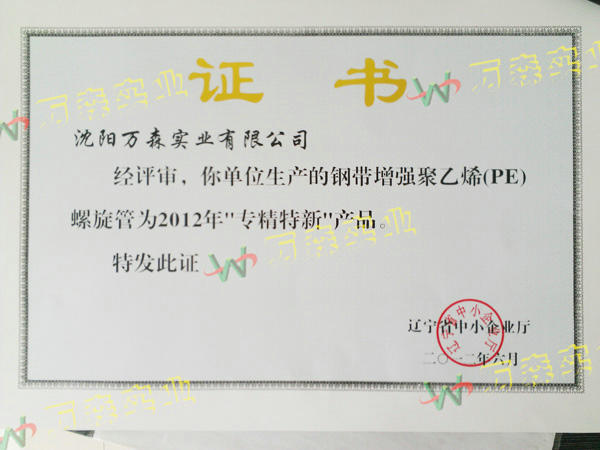 证书
沈阳万森实业有限公司
经评审，你单位生产的钢带增强聚乙烯(PE)
螺旋管为2012年"专精特新"产品。
特发此证
辽宁省中小企业厅
二〇一二年六月
辽宁省中小企业厅
万森实业
万森实业
万森实业
万森实业
万森实业